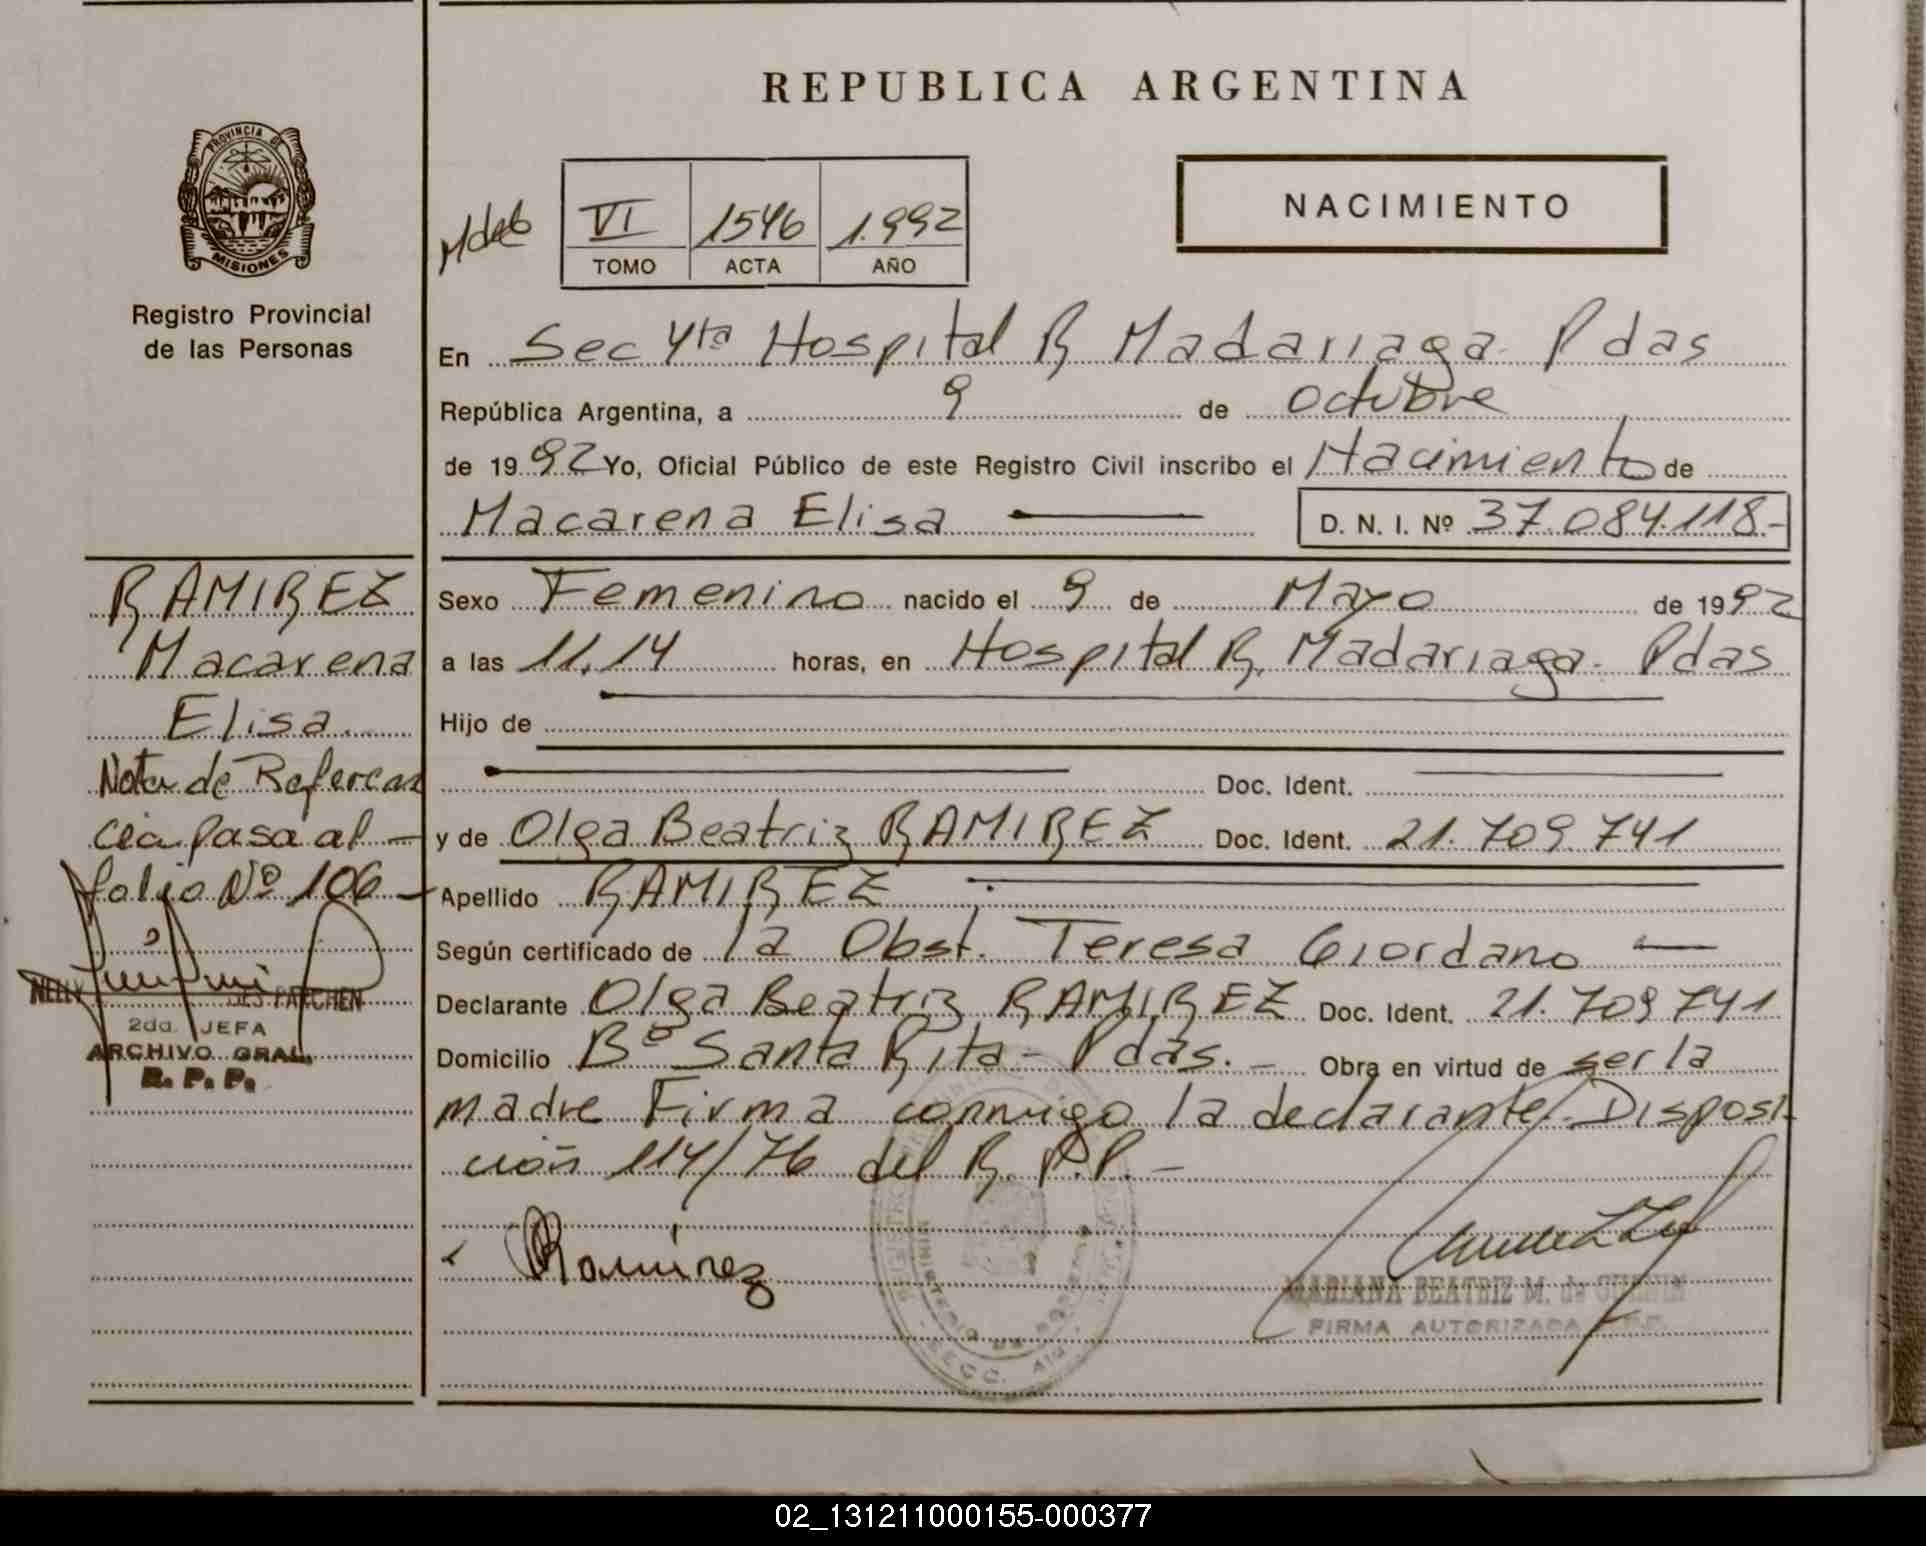 REPUBLICA ARGENTINA
PROVINCIA DE
MISIONES
Registro Provincial
de las Personas
VI 1546 1.992
TOMO ACTA AÑO
NACIMIENTO
En Sec 4ta Hospital R Madariaga. Pdas
República Argentina, a 9 de octubre
de 1992 Yo, Oficial Público de este Registro Civil inscribo el Nacimiento de
Macarena Elisa
D. N. I. Nº 37.084.118.-
Sexo Femenino nacido el 9 de Mayo de 1992
a las 11.14 horas, en Hospital R. Madariaga. Pdas
Hijo de
Doc. Ident.
y de Olga Beatriz RAMIREZ Doc. Ident. 21.709.741
Apellido RAMIREZ
Según certificado de la Obst. Teresa Giordano
Declarante Olga Beatriz RAMIREZ Doc. Ident. 21.709741
Domicilio Bº Santa Rita - Pdas. - Obra en virtud de ser la
madre Firma conmigo la declarante. Disposi
ción 114/76 del R. P.P. -
Ramirez
MARIANA BEATRIZ M. de
FIRMA AUTORIZADA
RAMIREZ
Macarena
Elisa
Nota de Referen
cia pasa al -
folio Nº 106 -
NELLY PARCHEN
2da. JEFA
ARCHIVO GRAL.
R. P. P.
02_131211000155-000377